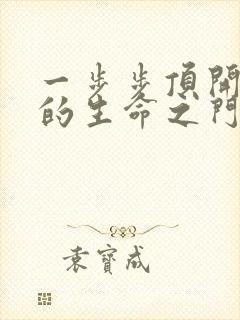 一步步頂開
的生命之門
袁寶成